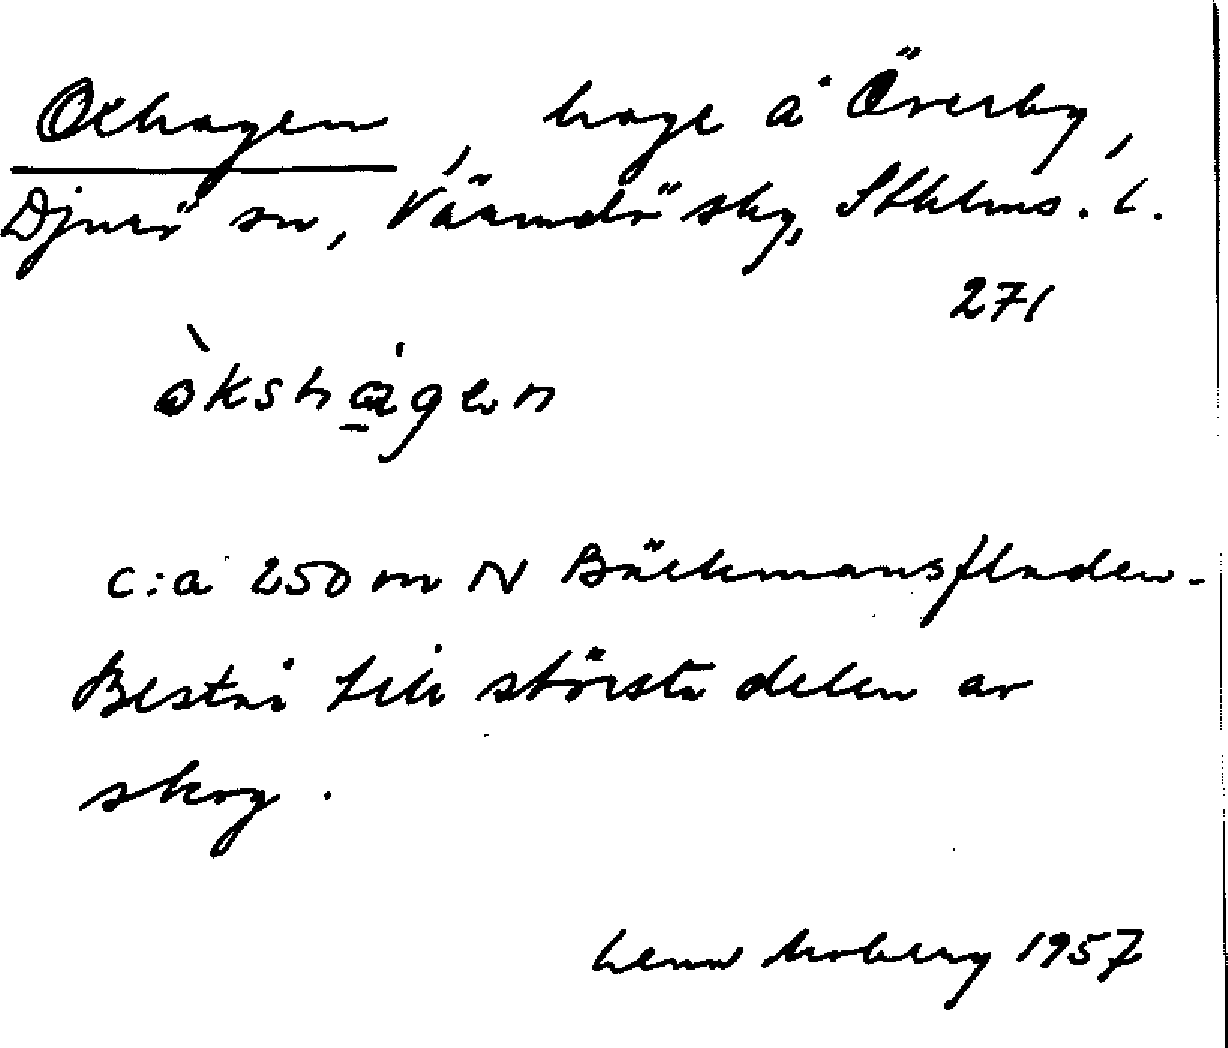 Oxhagen, hage å Överby,
Djurö sn, Värmdö sky, Sthlms. l.
271
òkshágen
c:a 250 m N Bäckmansfladen.
Består till största delen av
skog.
Lena Moberg 1957